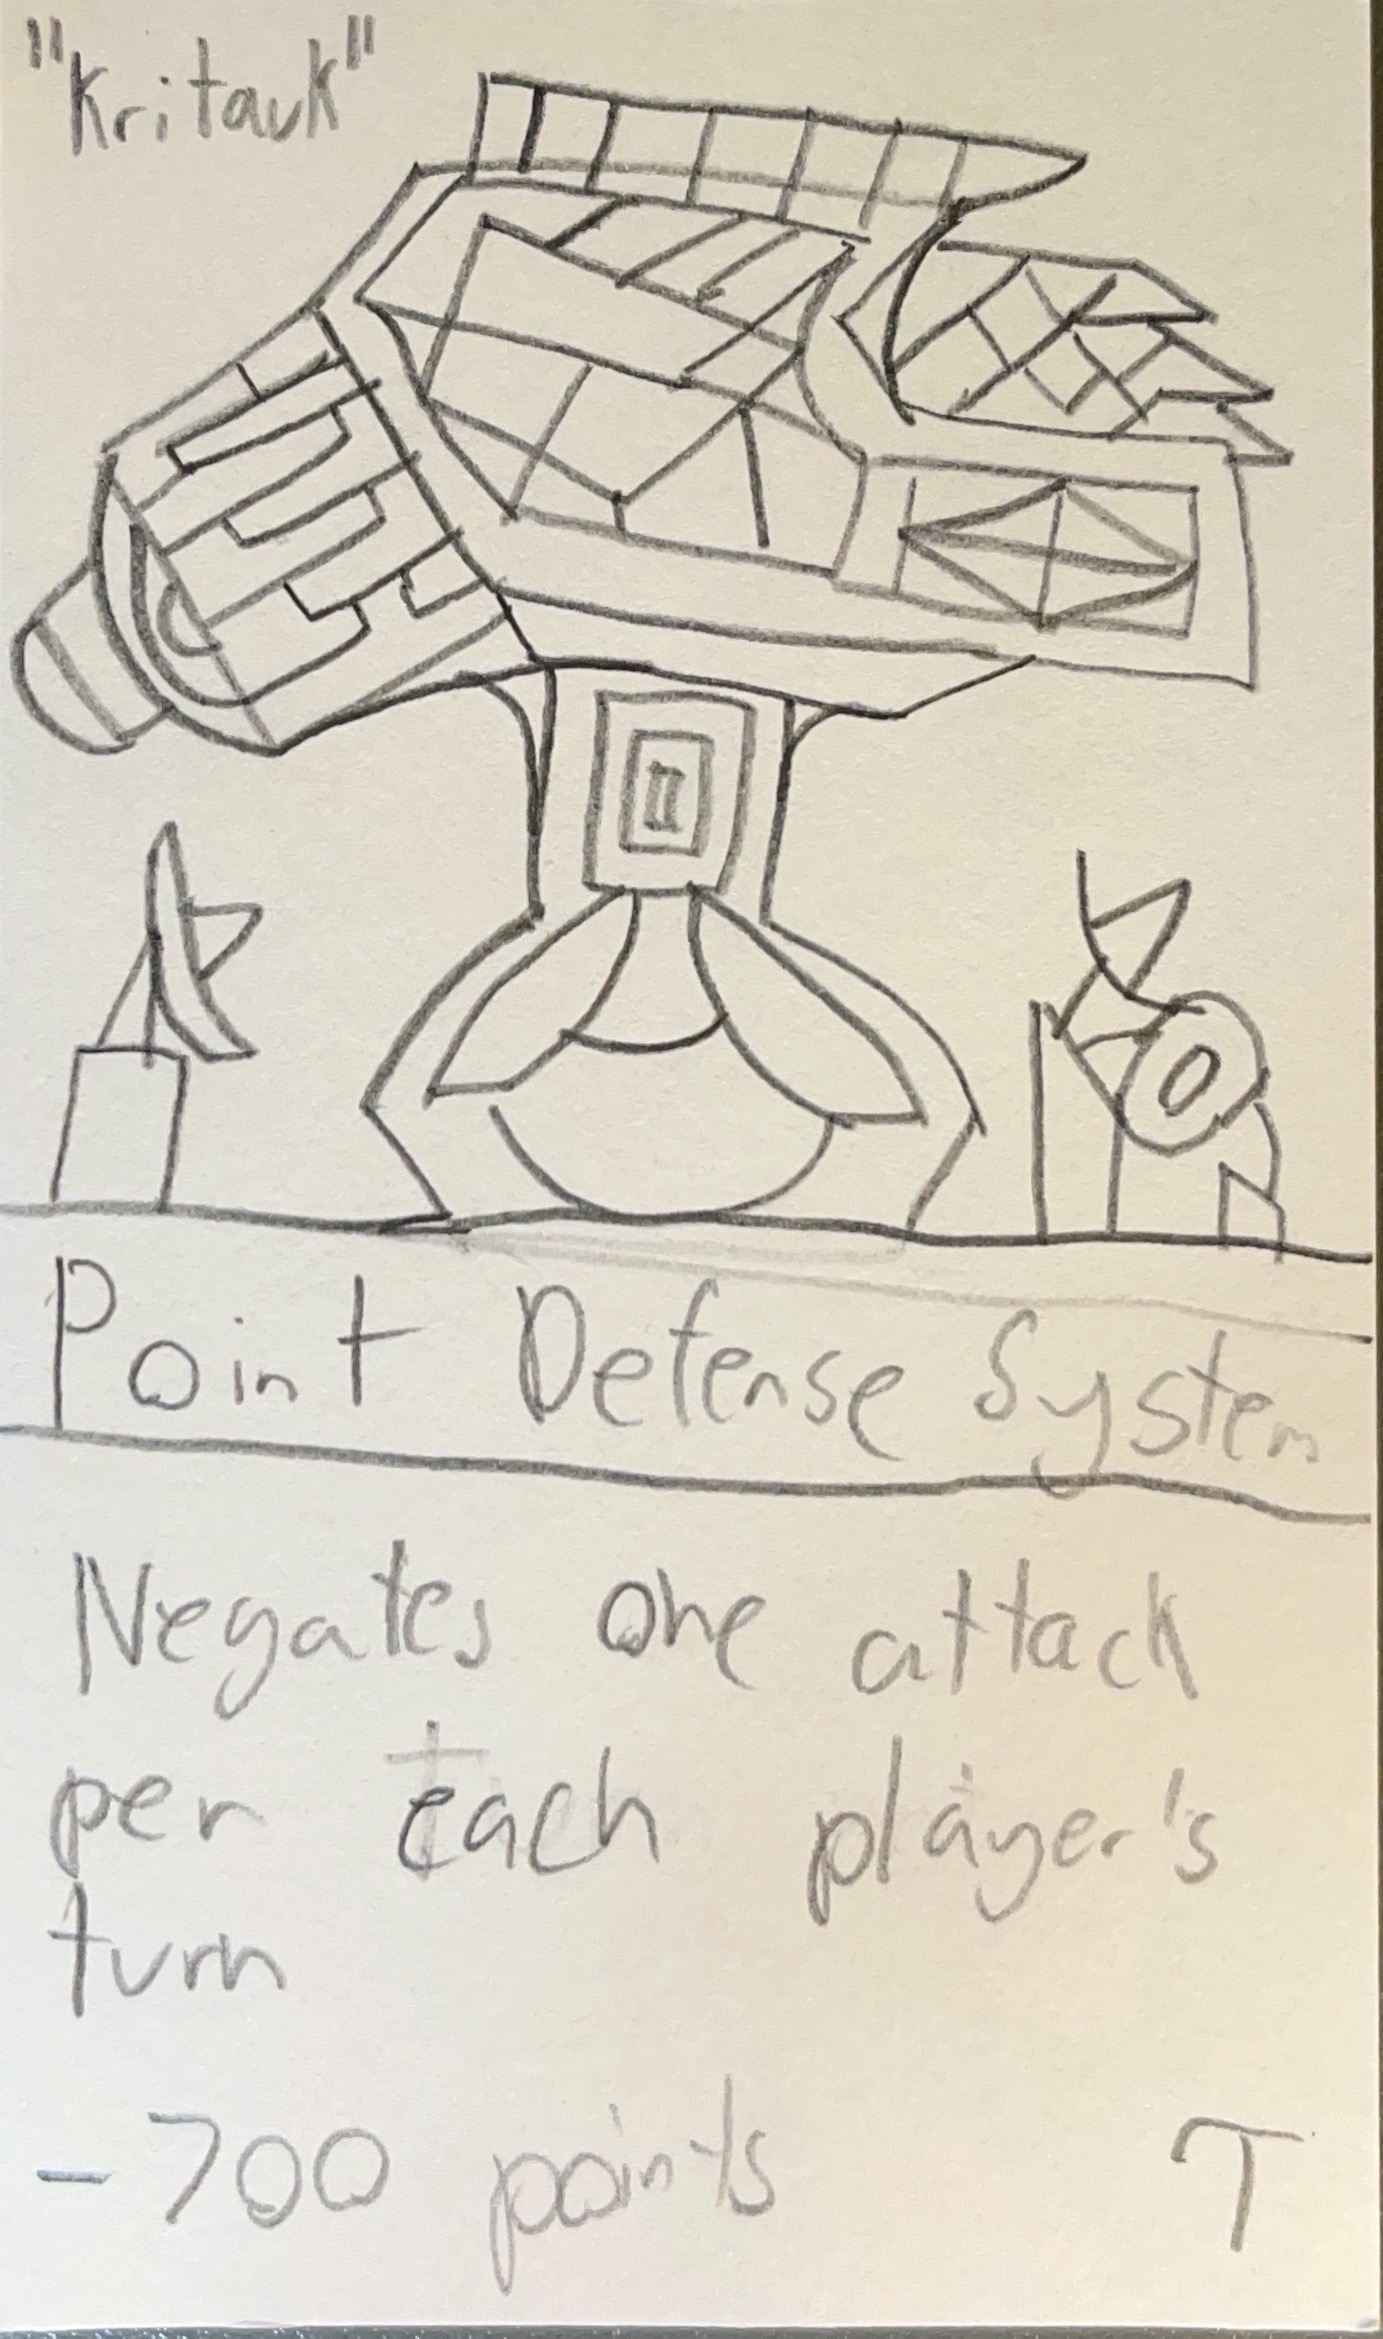 "Kritauk"
Point Defense System
Negates one attack
per each player's
turn
-700 points T